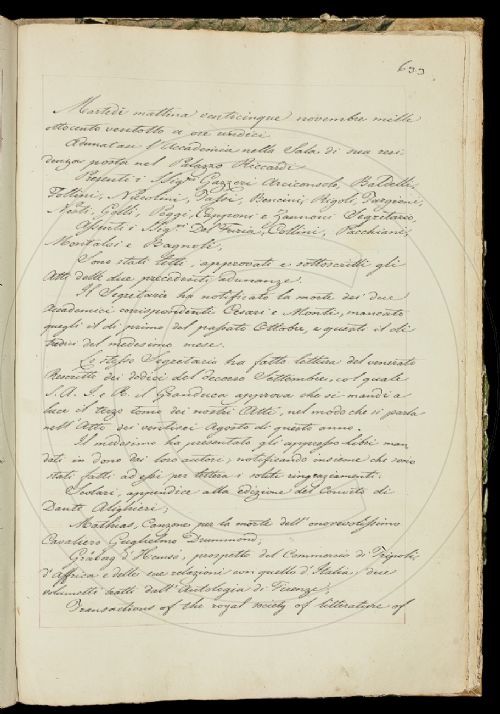 633
Martedì mattina venticinque novembre mille
ottocento ventotto a ore undici
Adunatasi l'Accademia nella Sala di sua resi
denza posta nel Palazzo Riccardi
Presenti i Sigri Gazzeri Arciconsolo, Baldelli,
Follini, Niccolini, Tassi, Bencini, Rigoli, Targioni,
Nesti, Gelli, Poggi, Capponi e Zannoni Segretario,
Assenti i Sigri Del Furia, Collini, Pacchiani,
Montalvi e Bagnoli,
Sono stati letti, approvati e sottoscritti gli
Atti delle due precedenti adunanze.
Il Segretario ha notificato la morte dei due
Accademici corrispondenti Cesari e Monti, mancato
quegli il dì primo del passato Ottobre, e questi il dì
tredici del medesimo mese.
Lo stesso Segretario ha fatto lettura del venerato
Rescritto dei dodici del decorso Settembre, col quale
S. A. I. e R. il Granduca approva che si mandi a
luce il terzo tomo dei nostri Atti, nel modo che si parla
nell'Atto dei ventisei Agosto di questo anno.
Il medesimo ha presentato gli appresso libri man
dati in dono dai loro autori, notificando insieme che sono
stati fatti ad essi per lettera i soliti ringraziamenti:
Scolari, appendice alla edizione del Convito di
Dante Alighieri;
Mathias, Canzone per la morte dell'onorevolissimo
Cavaliere Guglielmo Drummond;
Gråberg d'Hemsö, prospetto del Commercio di Tripoli
d'Affrica e delle sue relazioni con quello d'Italia, due
volumetti tratti dall'Antologia di Firenze;
Transactions of the royal society of litterature of